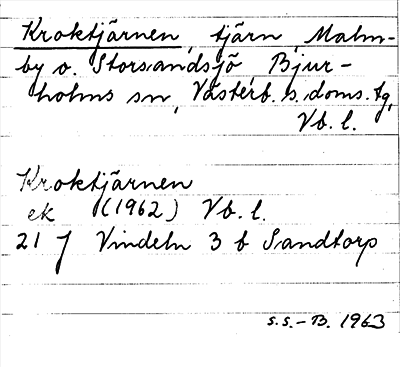 Kroktjärnen, tjärn, Malm-
by o. Storsandsjö, Bjur-
holms sn, Västerb. s. doms. tg,
Vb. l.
Kroktjärnen
ek (1962) Vb. l.
21 J Vindeln 3 b Sandtorp
S.S.-B. 1963